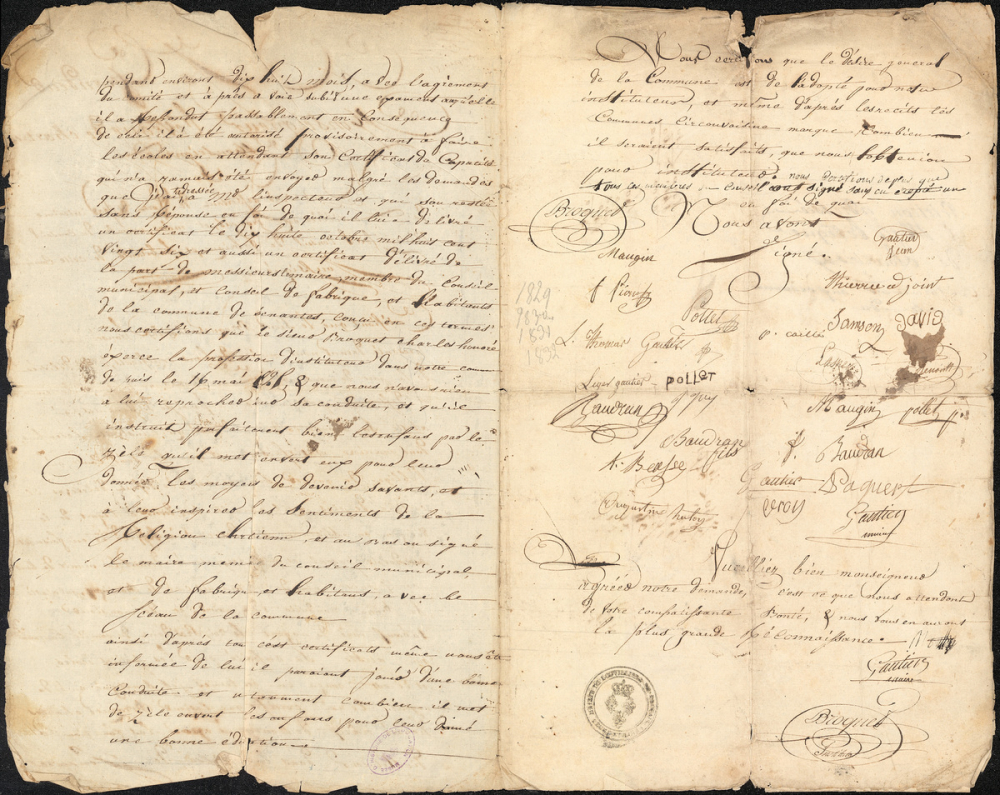 pendant environt dix huit mois, a vec l'agrément
du comité et à près a voir subit une exament auqu'elle
il a répondut passablement en conséquence
de cela il a été autorisé provisoirement à faire
les écoles en attendant son Certificat de Capacité
qui n'a jamais été envoyer malgré les demandes
que j'ai adressée a Mr l'inspecteur et qui son resté
sans réponse en foi de quoi il lui a délivré
un certificat le dix huite octobre mil huit cent
vingt six et aussi un certificat délivré de
la part de messieurs le maire membre du Conseil
municipal, et Conseil de fabrique, et habitants
de la commune de senantes, conçu en ces termes
nous certifions que le sieur Broquet charles honoré
éxerce la profession d'instituteur dans notre com
de puis le 16 mai & que nous n'avons rien
a lui reprocher sur sa conduite, et qu'il
instruit parfaitement bien les enfans par le
zèle qu'il met envert eux pour leur
donner les moyens de devenir savants, et
à leur inspirer les sentiments de la
Religion chrétienne, et au bas on signé
le maire membre du conseil municipal,
et de fabrique et habitant, a vec le
séau de la commune
ainsi d'après tou cest certificats même nous été
informée de lui il paraient jouir d'une bonne
Conduite et vraiment combien il met
de zèle envert les enfans pour leur donné
une bonne éducation
Nous certifions que le désire général
de la Commune est de l'adopté pour notre
instituteur, et même d'après les recits des
Communes circonvoisine marque Combien
il seraient satisfaits, que nous l'obtenion
pour instituteur. nous certifions de plus que
tous les membres du Conseil ont signé sauf un
en foi de quoi
Broquet Nous avons
signé. Gautier
Maugin
f Pierre thierre adjoint
1829
1830
1831
1832
Pollet
Thomas Gautier p. caillé Samson David
Leger gautier POLLET
Baudrun Maugin pollet
Baudran
fils f. Baudran
Gautier Paquest
veroy Gautier
maire
Veuilliez bien monseigneur
agréer notre demande, c'est ce que nous attendont
de votre compatissante bonté, & nous vous en aurons
la plus grande réconnaissance.
Gautier
maire
Broquet